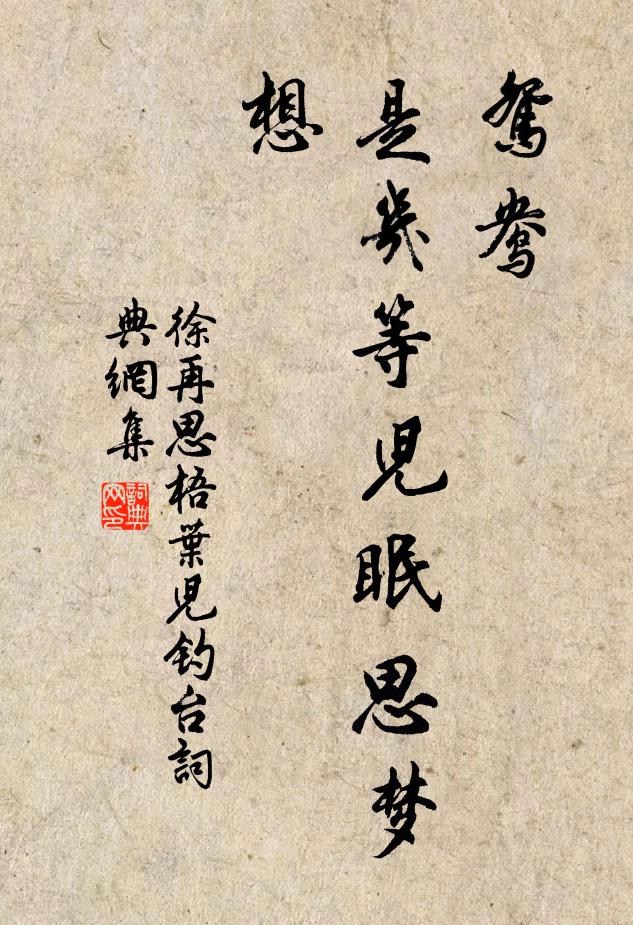 鴛鴦
是幾等兒眠思梦
想
徐再思梧葉兒釣台詞
典網集
詞典网印